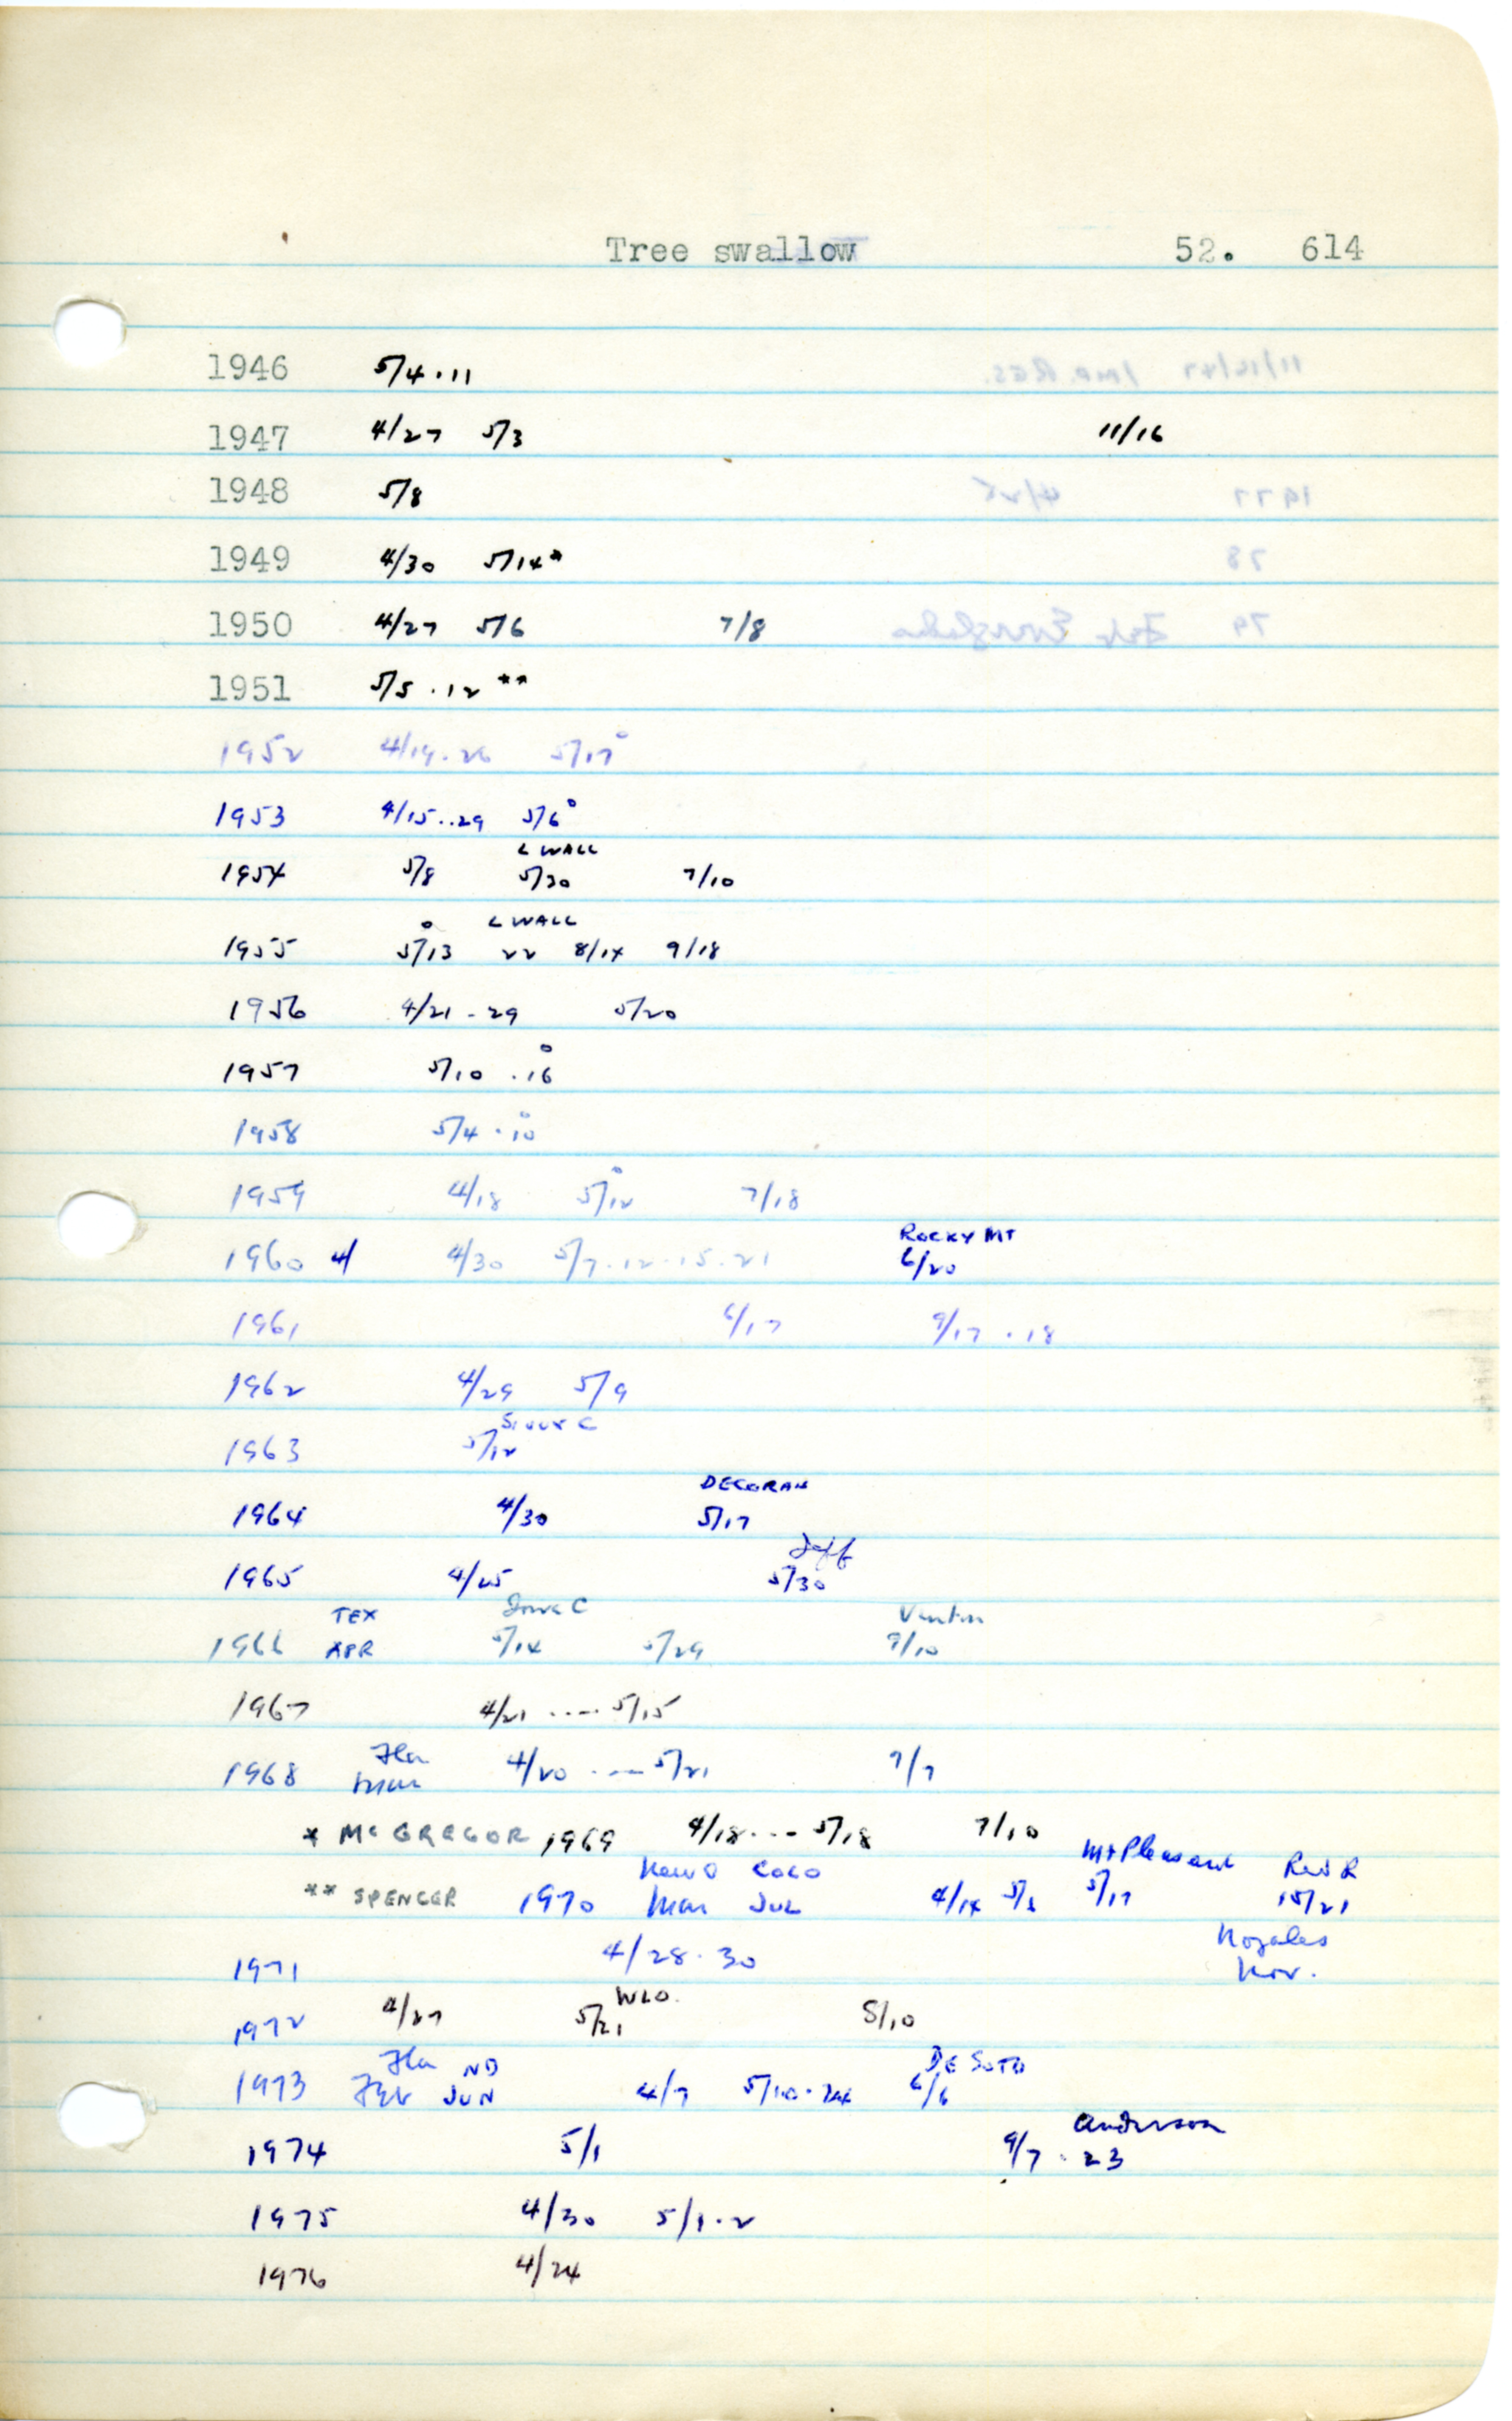 Tree swallow 52. 614
1946 5/4.11
1947 4/27 5/3 11/16
1948 5/8
1949 4/30 5/14*
1950 4/27 5/6 7/8
1951 5/5.12**
1952 4/19.26 5/17°
1953 4/15..29 5/6°
L WALL
1954 5/8 5/30 7/10
° L WALL
1955 5/13 22 8/14 9/18
1956 4/21-29 5/20
°
1957 5/10 .16
°
1958 5/4.10
°
1959 4/18 5/12 7/18
ROCKY MT
1960 4/ 4/30 5/7.12.15.21 6/20
1961 6/17 9/17.18
1962 4/29 5/9
Sioux C
1963 5/12
DECORAH
1964 4/30 5/17
1965 4/25 5/30
TEX Iowa C Vinton
1966 APR 5/14 5/29 9/10
1967 4/21 ---- 5/15
Fla
1968 Mar 4/20 ---- 5/21 7/7
* McGREGOR 1969 4/18 --- 5/18 7/10
COLO Mt Pleasant Red R
** SPENCER 1970 Mar JUL 4/14 5/2 5/17 5/21
Nogales
1971 4/28.30 Nov.
WLO.
1972 4/27 5/21 8/10
Fla ND DE SOTO
1973 Feb JUN 4/7 5/10.24 6/6
Anderson
1974 5/1 9/7.23
1975 4/30 5/1.2
1976 4/24